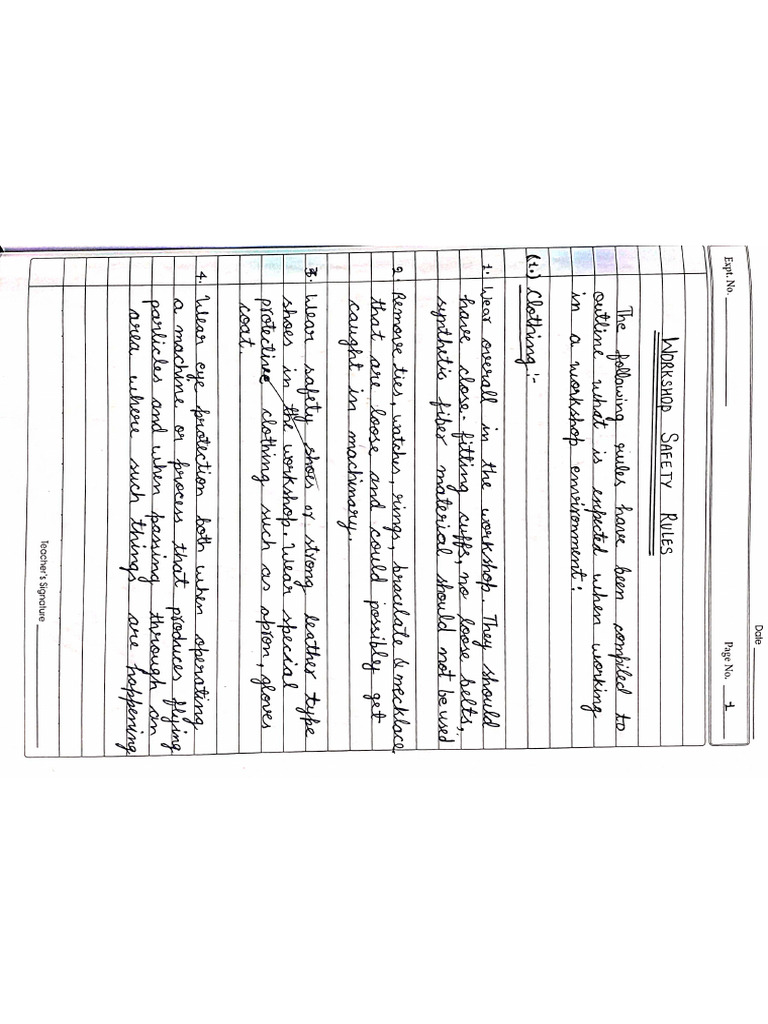 Date
Expt. No.
Page No. 1
WORKSHOP SAFETY RULES
The following rules have been compiled to
outline what is expected when working
in a workshop environment:
(1.) Clothing:-
1. Wear overall in the workshop. They should
have close-fitting cuffs, no loose belts,
synthetic fiber material should not be used
2. Remove ties, watches, rings, braculate & necklace
that are loose and could possibly get
caught in machinary.
3. Wear safety shoes of strong leather type
shoes in the workshop. Wear special
protective clothing such as apron, gloves
coat.
4. Wear eye protection both when operating
a machine or process that produces flying
particles and when passing through an
area where such things are happening
Teacher's Signature